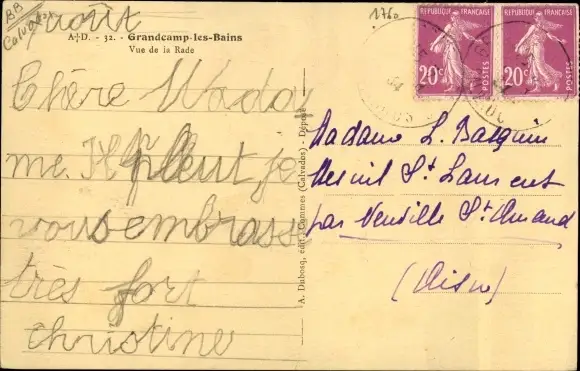 BB
Calvados
août
1760
A+D. - 32. - Grandcamp-les-Bains
Vue de la Rade
Chère Mada
me. Il pleut je
vous embrasse
très fort
christine
A. Dubosq, édit., Commes (Calvados) - Déposé
REPUBLIQUE FRANÇAISE
20c
POSTES
REPUBLIQUE FRANÇAISE
20c
POSTES
Madame L. Basquin
Mesnil St Laurent
par Neuville St Amand
(Aisne)